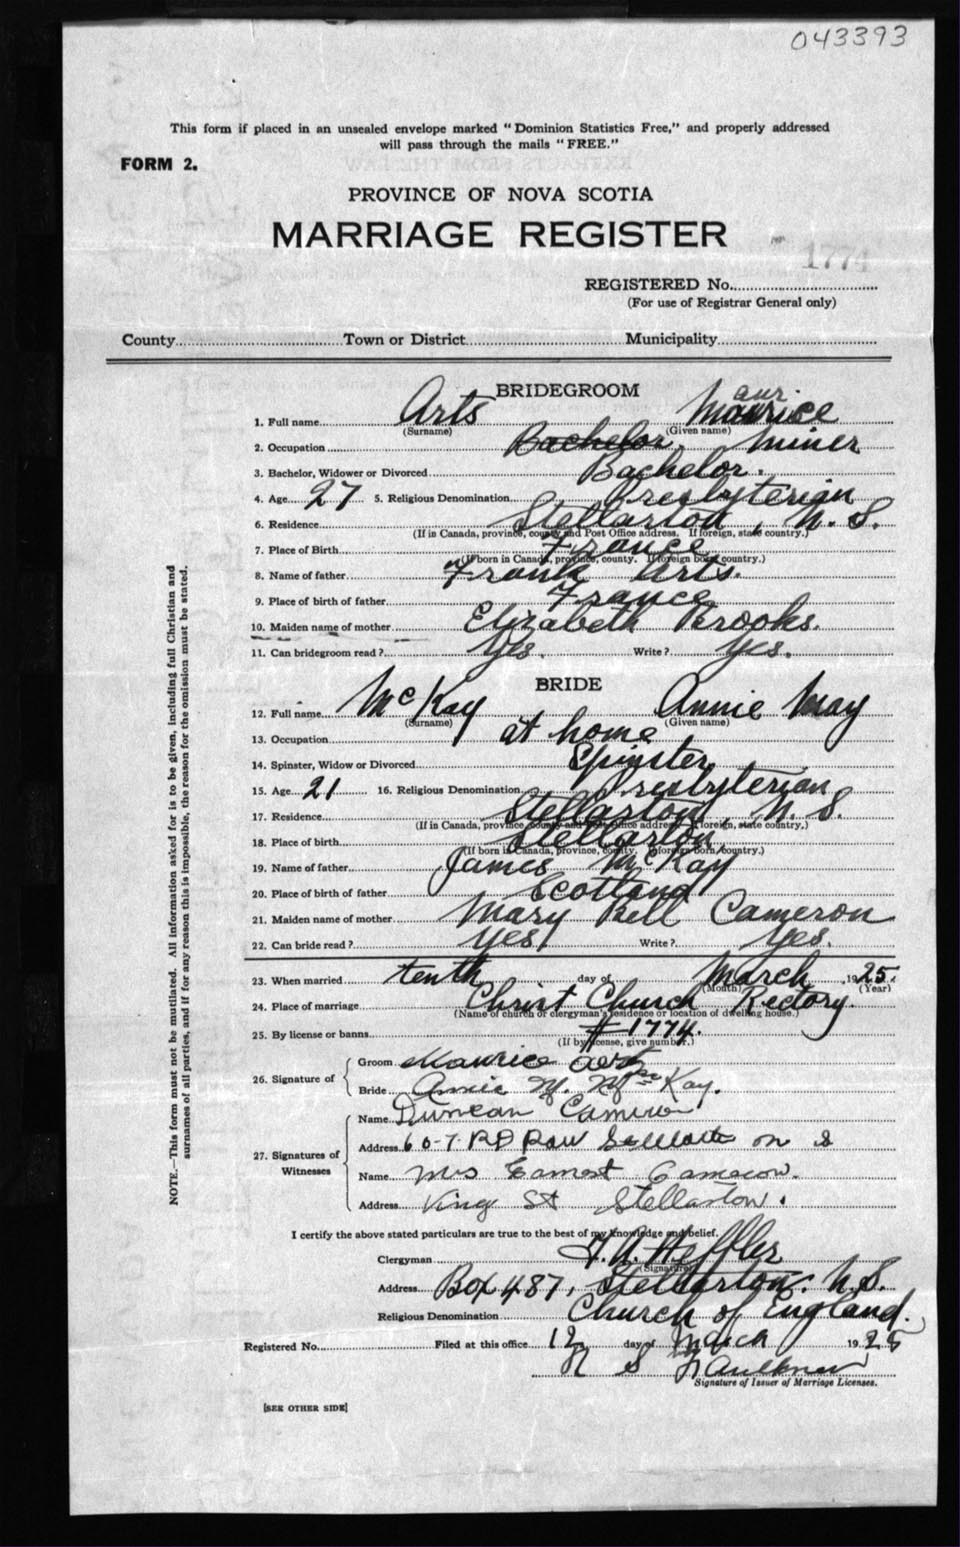 043393
This form if placed in an unsealed envelope marked "Dominion Statistics Free," and properly addressed
will pass through the mails "FREE."
FORM 2.
PROVINCE OF NOVA SCOTIA
MARRIAGE REGISTER
1774
REGISTERED No.
(For use of Registrar General only)
County Town or District Municipality
BRIDEGROOM
aur
1. Full name Arts Maurice
(Surname) (Given name)
2. Occupation Bachelor, Miner
3. Bachelor, Widower or Divorced Bachelor.
4. Age 27 5. Religious Denomination Presbyterian
6. Residence Stellarton, N. S.
(If in Canada, province, county and Post Office address. If foreign, state country.)
7. Place of Birth France
(If born in Canada, province, county. If foreign born, country.)
8. Name of father Frank Arts.
9. Place of birth of father France
10. Maiden name of mother Elizabeth Brooks.
11. Can bridegroom read? Yes. Write? Yes.
BRIDE
12. Full name McKay Annie May
(Surname) (Given name)
13. Occupation at home
14. Spinster, Widow or Divorced Spinster
15. Age 21 16. Religious Denomination Presbyterian
17. Residence Stellarton, N. S.
(If in Canada, province, county and Post Office address. If foreign, state country.)
18. Place of birth Stellarton,
(If born in Canada, province, county. If foreign born, country.)
19. Name of father James McKay
20. Place of birth of father Scotland
21. Maiden name of mother Mary Bell Cameron
22. Can bride read? Yes Write? Yes.
23. When married tenth day of March 1925
(Month) (Year)
24. Place of marriage Christ Church Rectory
(Name of church or clergyman's residence or location of dwelling house.)
25. By license or banns # 1774.
(If by license, give number.)
26. Signature of
Groom Maurice Arts
Bride Annie M. McKay.
27. Signatures of Witnesses
Name Duncan Cameron
Address Row
Name Mrs Earnest Cameron.
Address King St Stellarton.
I certify the above stated particulars are true to the best of my knowledge and belief.
Clergyman Heffler
(Signature)
Address Box 487, Stellarton. N. S.
Religious Denomination Church of England.
Registered No. Filed at this office 12 day of March 1925
N S Faulkner
Signature of Issuer of Marriage Licenses.
[SEE OTHER SIDE]
NOTE.—This form must not be mutilated. All information asked for is to be given, including full Christian and
surnames of all parties, and if for any reason this is impossible, the reason for the omission must be stated.